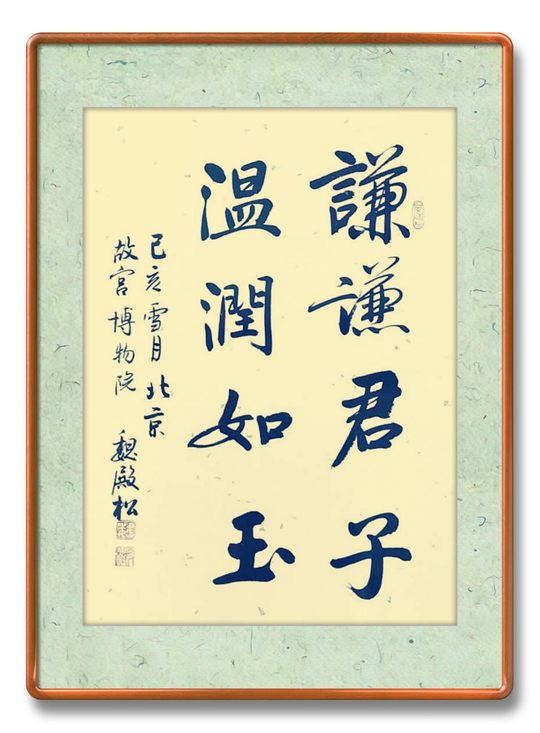 謙謙君子
溫潤如玉
己亥雪月北京
故宮博物院 魏殿松